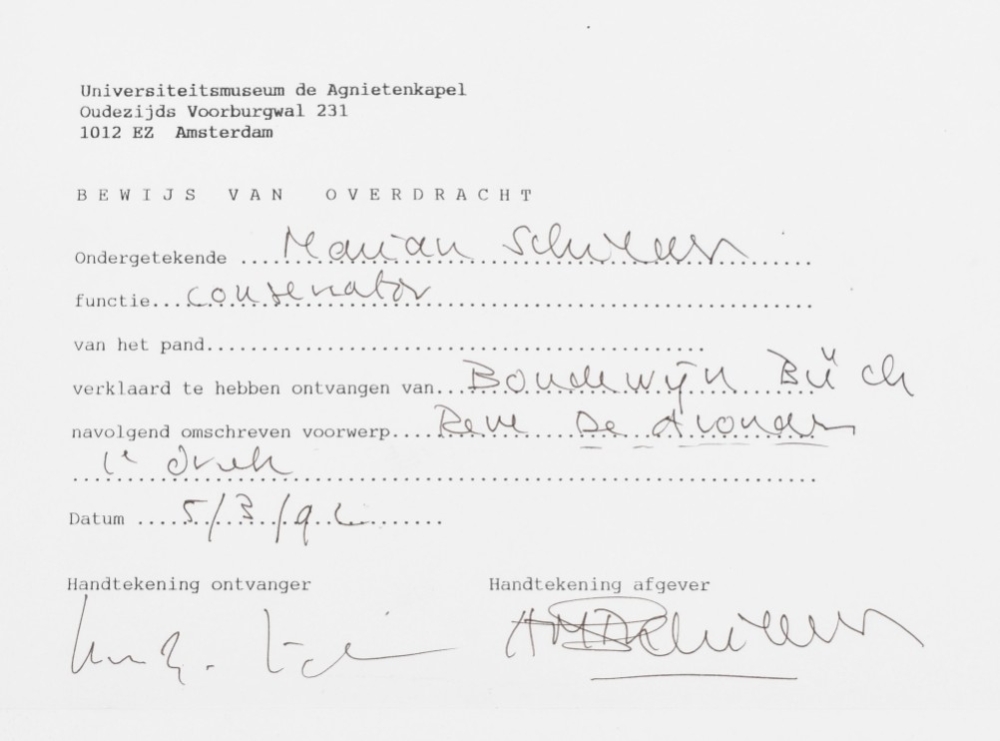 Universiteitsmuseum de Agnietenkapel
Oudezijds Voorburgwal 231
1012 EZ Amsterdam
BEWIJS VAN OVERDRACHT
Ondergetekende .... Marian Schilder
functie... conservator
van het pand
verklaard te hebben ontvangen van... Boudewijn Büch
navolgend omschreven voorwerp.... Reve De Avonden
1e druk
Datum .... 5/3/92
Handtekening ontvanger Handtekening afgever